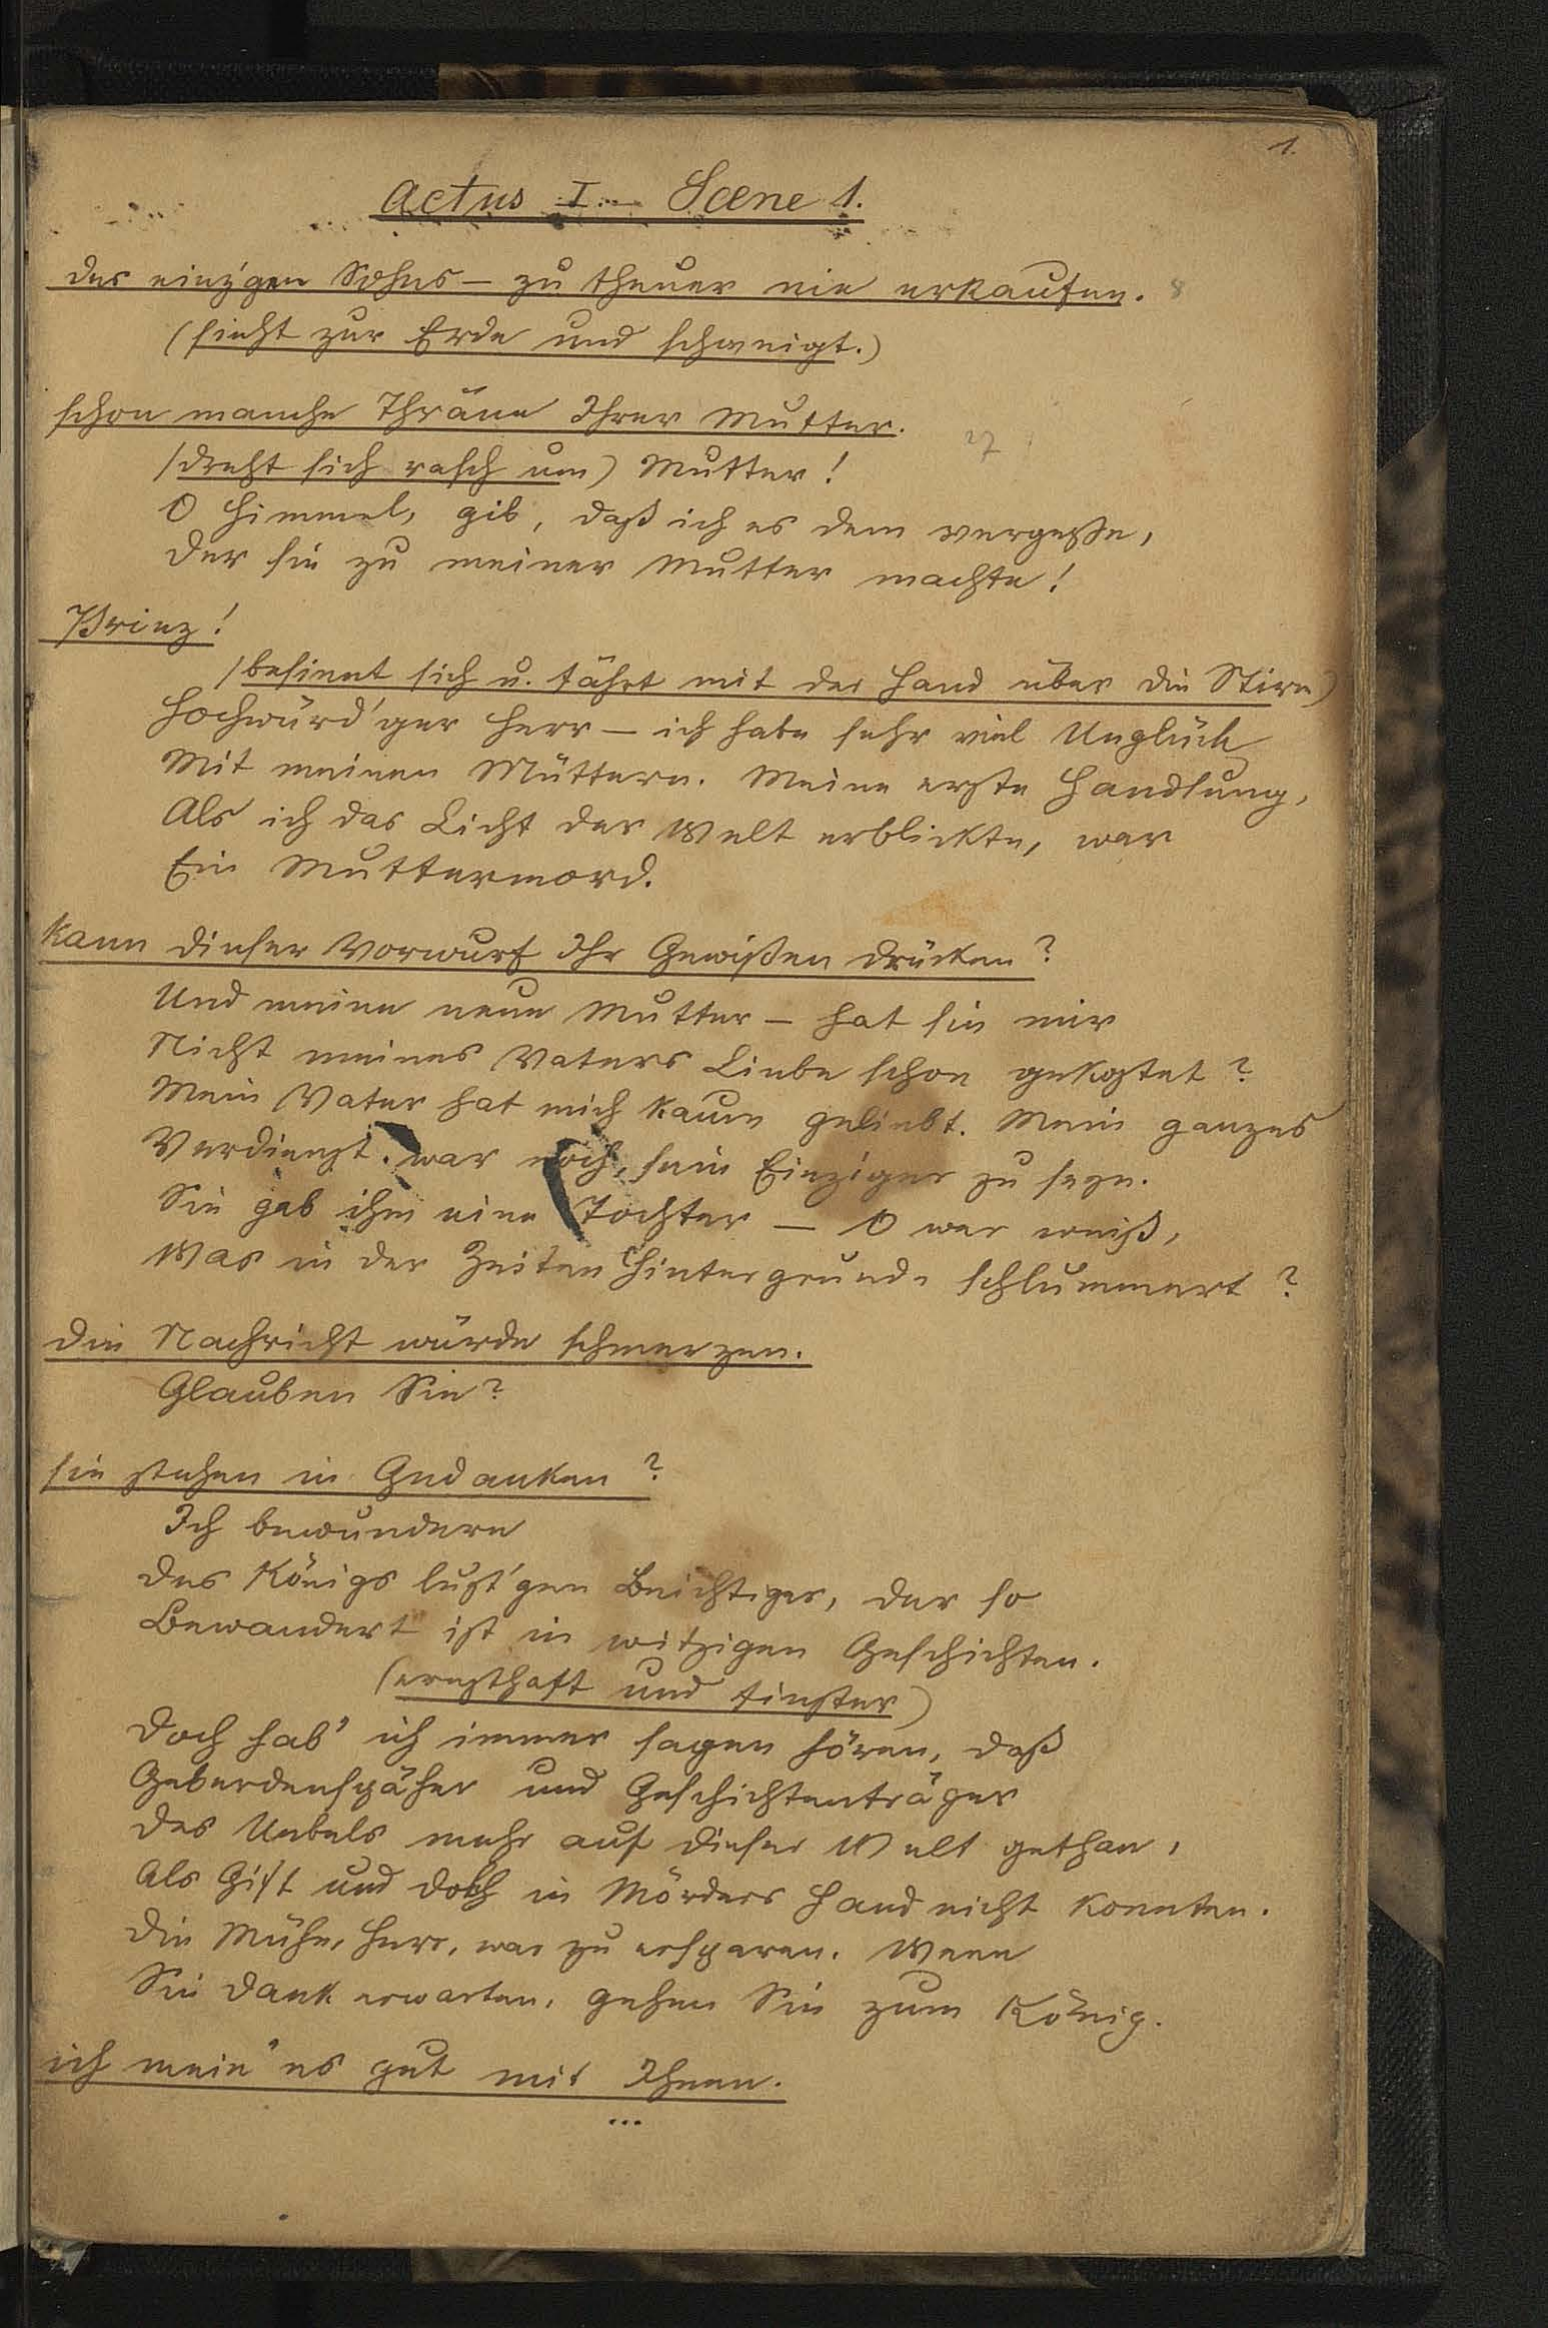 1.
Actus I. – Scene 1.
des einz'gen Sohns – zu theuer nie erkaufen. 8
(sieht zur Erde und schweigt.)
schon manche Thräne Ihrer Mutter. 27
(dreht sich rasch um) Mutter!
O Himmel, gib, daß ich es dem vergesse,
der sie zu meiner Mutter machte!
Prinz!
(besinnt sich u. fährt mit der Hand über die Stirn)
Hochwürd'ger Herr – ich habe sehr viel Unglück
Mit meinen Müttern. Meine erste Handlung,
Als ich das Licht der Welt erblickte, war
Ein Muttermord.
kann dieser Vorwurf Ihr Gewißen drücken?
Und meine neue Mutter – hat sie mir
Nicht meines Vaters Liebe schon gekostet?
Mein Vater hat mich kaum geliebt. Mein ganzes
Verdienst war noch, sein Einziger zu seyn.
Sie gab ihm eine Tochter – O wer weiß,
Was in der Zeiten Hintergrunde schlummert?
die Nachricht würde schmerzen.
Glauben Sie?
sie stehen in Gedanken?
Ich bewundere
des Königs lust'gen Beichtiger, der so
Bewandert ist in witzigen Geschichten.
(ernsthaft und finster)
doch hab' ich immer sagen hören, daß
Geberdenspäher und Geschichtenträger
des Uebels mehr auf dieser Welt gethan,
Als Gift und dolch in Mörders Hand nicht konnten.
die Mühe, Herr, war zu ersparen. Wenn
Sie dank erwarten, gehen Sie zum König.
ich mein' es gut mit Ihnen.
...